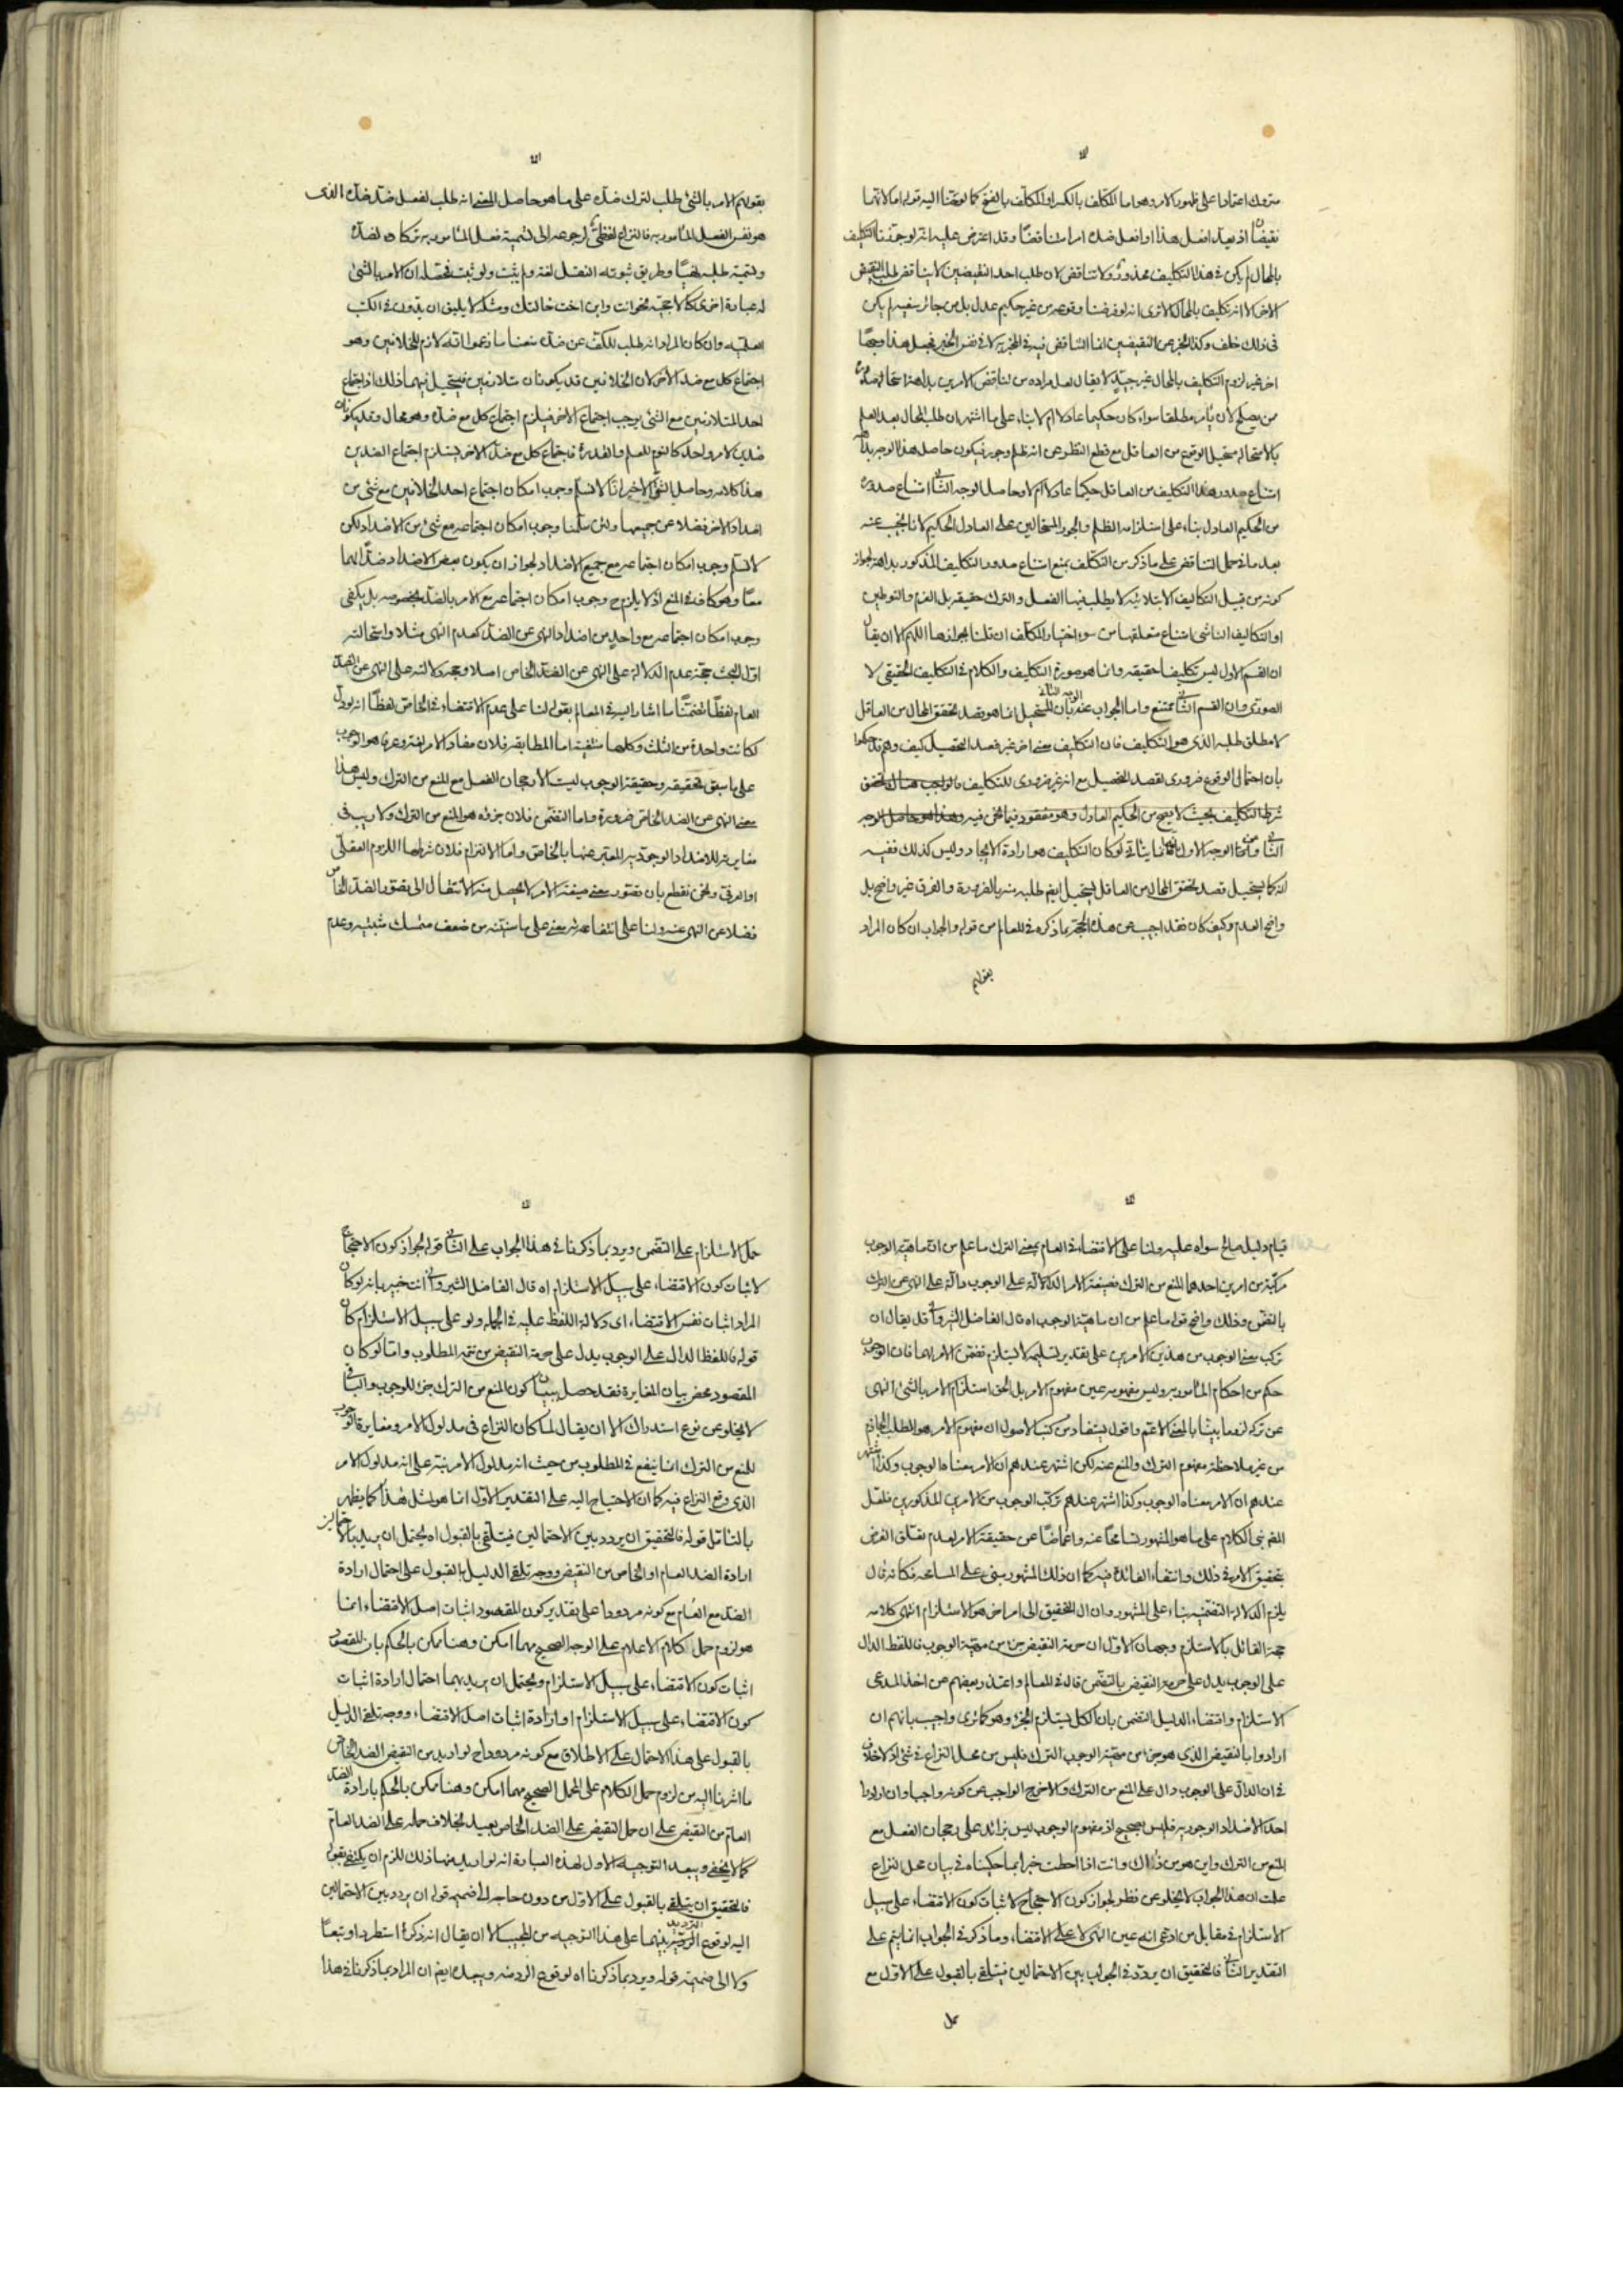 متروك اعتمادا على ظهور الامر وهو اما المكلف بالكسر او المكلف بالفتح كما لوحنا اليه قوله اما لانهما
نقيضان اذ يعد افعل هذا او افعل ضده امرا متناقضا وقد اعترض عليه انه لو جوزنا التكليف
بالمحال لم يكن في هذا التكليف محذور ولا تناقض لان طلب احد النقيضين لا يناقض طلب النقيض
الاخر الا انه تكليف بالمحال الا ترى انه لو فرضنا وقوعه من غير حكيم عدل بل من جائر سفيه لم يكن
في ذلك خلف وكذا الخبر عن النقيضين انما التناقض فيه في المخبر به لا في نفس الخبر فجعل هذا وجها
اخر غير لزوم التكليف بالمحال غير جيد لا يقال لعل مراده من تناقض الامرين بداهة استحالة صدوره
ممن يصلح لان يأمر مطلقا سواء كان حكيما عادلا ام لا بناء على ما اشتهر ان طلب المحال بعد العلم
بالاستحالة مستحيل الوقوع من العاقل مع قطع النظر عن انه ظلم وجور فيكون حاصل هذا الوجه بداهة
امتناع صدور هذا التكليف من العاقل حكيما عادلا ام لا وحاصل الوجه الثاني امتناع صدوره
من الحكيم العادل بناء على استلزامه الظلم والجور المستحالين على العادل الحكيم لانا نجيب عنه
بعد ما في حمل التناقض على ما ذكر من التكلف بمنع امتناع صدور التكليف المذكور بداهة لجواز
كونه من قبيل التكاليف الابتلائية لا يطلب فيها الفعل والترك حقيقة بل العزم والتوطين
او التكاليف الناشي امتناع متعلقها من سوء اختيار المكلف ان قلنا بجوازها اللهم الا ان يقال
ان القسم الاول ليس تكليفا حقيقة وانما هو صورة التكليف والكلام في التكليف الحقيقي لا
الصوري وان القسم الثاني ممتنع واما الجواب عنه بان المستحيل انما هو قصد تحقق المحال من العاقل
لا مطلق طلبه الذي هو التكليف فان التكليف معنى اخر غير قصد التحصيل كيف وهم قد حكموا
بان احتمال الوقوع ضروري لقصد التحصيل مع انه غير ضروري للتكليف
انه كما يستحيل قصد تحقق المحال من العاقل يستحيل ايضا طلبه منه بالضرورة والفرق غير واضح بل
واضح العدم وكيف كان فقد اجيب عن هذه الحجة بما ذكره في المعالم من قوله والجواب ان كان المراد
بقولهم
بقولهم الامر بالشئ طلب لترك ضده على ما هو حاصل المعنى انه طلب لفعل ضد ضده الذي
هو نفس الفعل المأمور به فالنزاع لفظي لرجوعه الى تسمية فعل المأمور به تركا لضده
وتسمية طلبه نهيا وطريق ثبوته النقل لغة ولم يثبت ولو ثبت فمحصله ان الامر بالشئ
له عبارة اخرى كالاحجية نحو انت وابن اخت خالتك ومثله لا يليق ان يدون في الكتب
العلمية وان كان المراد انه طلب للكف عن ضده منعنا ما زعموا انه لازم للخلافين وهو
اجتماع كل مع ضد الاخر لان الخلافين قد يكونان متلازمين فيستحيل فيهما ذلك اذ اجتماع
احد المتلازمين مع الشئ يوجب اجتماع الاخر فيلزم اجتماع كل مع ضده وهو محال وقد يكونان
ضدين لامر واحد كالنوم للعلم والقدرة فاجتماع كل مع ضد الاخر يستلزم اجتماع الضدين
هذا كلامه وحاصل الشق الاخير انا لا نسلم وجوب امكان اجتماع احد الخلافين مع شئ من
اضداد الاخر فضلا عن جميعها ولئن سلمنا وجوب امكان اجتماعه مع شئ من الاضداد لكن
لا نسلم وجوب امكان اجتماعه مع جميع الاضداد لجواز ان يكون بعض الاضداد ضدا لهما
معا وهو كاف في المنع اذ لا يلزم ح وجوب امكان اجتماعه مع الامر بالضد بخصوصه بل يكفي
وجوب امكان اجتماعه مع واحد من اضداد النهي عن الضد كعدم النهي مثلا واستحالته
اول البحث حجة عدم الدلالة على النهي عن الضد الخاص اصلا وحجة دلالته على النهي عن الضد
العام لفظا تضمنا ما اشار اليه في المعالم بقوله لنا على عدم الاقتضاء في الخاص لفظا انه لو دل
لكانت واحدة من الثلث وكلها منتفية اما المطابقة فلان مفاد الامر لغة وعرفا هو الوجوب
على ما سبق تحقيقه وحقيقة الوجوب ليست الا رجحان الفعل مع المنع من الترك وليس هذا
معنى النهي عن الضد الخاص ضرورة واما التضمن فلان جزئه هو المنع من الترك ولا ريب في
مغايرته للاضداد الوجودية المعتبر عنها بالخاص واما الالتزام فلان شرطها اللزوم العقلي
او العرفي ونحن نقطع بان تصور معنى صيغة الامر لا يحصل منه الانتقال الى تصور الضد الخاص
فضلا عن النهي عنه ولنا على انتفائه معنى على ما سنبينه من ضعف متمسك مثبتيه وعدم
قيام دليل صالح سواه عليه ولنا على الاقتضاء في العام بمعنى الترك ما علم من ان ماهية الوجوب
مركبة من امرين احدهما المنع من الترك فصيغة الامر الدالة على الوجوب دالة على النهي عن الترك
بالتضمن وذلك واضح قوله ما علم من ان ماهية الوجوب اه قال الفاضل الشيرواني قد يقال ان
تركب معنى الوجوب من هذين الامرين على تقدير تسليمه لا يستلزم تضمن الامر لهما فان الوجوب
حكم من احكام المأمور به وليس مفهومه عين مفهوم الامر بل الحق استلزام الامر بالشئ النهي
عن تركه لزوما بينا بالمعنى الاعم واقول يستفاد من كتب الاصول ان مفهوم الامر هو الطلب الجازم
من غير ملاحظة مفهوم الترك والمنع عنه لكن اشتهر عندهم ان الامر معناه الوجوب وكذا اشتهر
عندهم ان الامر معناه الوجوب وكذا اشتهر عندهم تركب الوجوب من الامرين المذكورين فلعل
المصم بنى الكلام على ما هو المشهور تسامحا عنه واغماضا عن حقيقة الامر لعدم تعلق الغرض
بتحقيق الامر في ذلك وانتفاء الفائدة فيه كما ان ذلك المشهور مبني على المسامحة فكانه قال
يلزم الدلالة التضمنية بناء على المشهور وان ال التحقيق الى امر اخر هو الاستلزام انتهى كلامه
حجة القائل بالاستلزم وجهان الاول ان حرمة النقيض جزء من مهية الوجوب فاللفظ الدال
على الوجوب يدل على حرمة النقيض بالتضمن قال في المعالم واعتذر بعضهم عن اخذ المدعى
الاستلزام واقتضاء الدليل التضمن بان الكل يستلزم الجزء وهو كما ترى واجيب بانهم ان
ارادوا بالنقيض الذي هو جزء من مهية الوجوب الترك فليس من محل النزاع في شئ اذ لا خلاف
في ان الدال على الوجوب دال على المنع من الترك والا خرج الواجب عن كونه واجبا وان ارادوا
احد الاضداد الوجودية فليس بصحيح اذ مفهوم الوجوب ليس بزائد على رجحان الفعل مع
المنع من الترك واين هو من ذاك وانت اذا احطت خبرا بما حكيناه في بيان محل النزاع
علمت ان هذا الجواب لا يخلو عن نظر لجواز كون الاحتجاج لاثبات كون الاقتضاء على سبيل
الاستلزام في مقابل من ادعى انه عين النهي لا على الاقتضاء وما ذكر في الجواب انما يتم على
التقدير الثاني فالتحقيق ان يردد في الجواب بين الاحتمالين فيتلقى بالقبول على الاول مع
حمل
حمل الاستلزام على التضمن ويرد بما ذكرنا في هذا الجواب على الثاني قوله لجواز كون الاحتجاج
لاثبات كون الاقتضاء على سبيل الاستلزام اه قال الفاضل الشيرواني انت خبير بانه لو كان
المراد اثبات نفس الاقتضاء اى دلالة اللفظ عليه في الجملة ولو على سبيل الاستلزام كان
قوله فاللفظ الدال على الوجوب يدل على حرمة النقيض من تتمة المطلوب واما لو كان
المقصود محض بيان المغايرة فقد حصل ببيان كون المنع من الترك جزء للوجوب والباقي
لا يخلو عن نوع استدراك الا ان يقال لما كان النزاع في مدلول الامر ومغايرة الوجوب
للمنع من الترك انما ينفع في المطلوب من حيث انه مدلول الامر نبه على انه مدلول الامر
الذي وقع النزاع فيه كما ان الاحتياج اليه على التقدير الاول انما هو لمثل هذا كما يظهر
بالتامل قوله فالتحقيق ان يردد بين الاحتمالين فيتلقى بالقبول اه يحتمل ان يريد بالاحتمالين
ارادة الضد العام او الخاص من النقيض ووجه تلقى الدليل بالقبول على احتمال ارادة
الضد مع العام مع كونه مردودا على تقدير كون المقصود اثبات اصل الاقتضاء انما
هو لزوم حمل كلام الاعلام على الوجه الصحيح مهما امكن وهنا ممكن بالحكم بان المقصود
اثبات كون الاقتضاء على سبيل الاستلزام ويحتمل ان يريد بهما احتمال ارادة اثبات
كون الاقتضاء على سبيل الاستلزام او ارادة اثبات اصل الاقتضاء ووجه تلقى الدليل
بالقبول على هذا الاحتمال على الاطلاق مع كونه مردودا ح لو اريد من النقيض الضد الخاص
ما اشرنا اليه من لزوم حمل الكلام على المحمل الصحيح مهما امكن وهنا ممكن بالحكم بارادة الضد
العام من النقيض على ان حمل النقيض على الضد الخاص بعيد بخلاف حمله على الضد العام
كما لا يخفى ويبعد التوجيه الاول لهذه العبارة انه لو اريد منها ذلك للزم ان يكتفى بقوله
فالتحقيق ان يتلقى بالقبول على الاول من دون حاجة الى ضميمة قوله ان يردد بين الاحتمالين
اليه لوقوع الترديد بينهما على هذا التوجيه من المجيب الا ان يقال انه ذكره استطرادا وتبعا
ولا الى ضميمة قوله ويرد بما ذكرنا اه لوقوع الرد منه ويبعده ايضا ان المراد بما ذكرنا في هذا